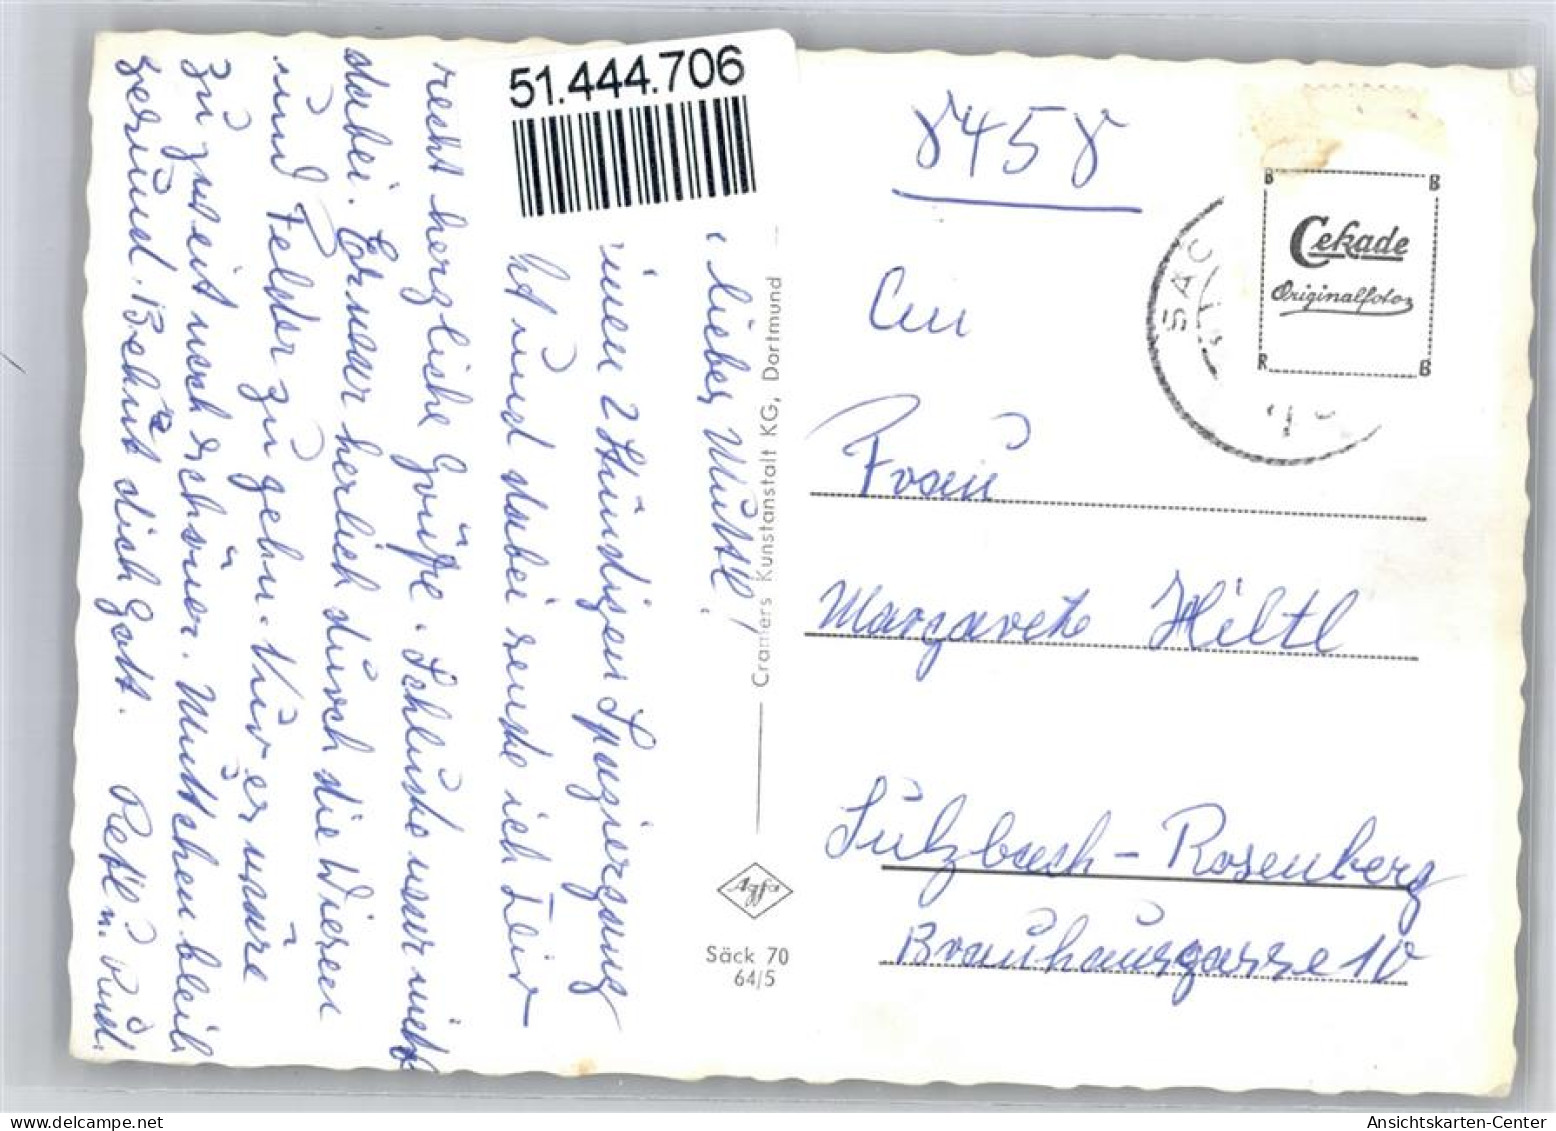 51.444.706
lieber Mutti!
einen 2 Stündigen Spaziergang
ht und dabei sende ich Dir
recht herzliche Grüße. Schlucke war mit
dabei. Es war herlich durch die Wiesen
und Felder zu gehn. Nur es wäre
zu zweit noch schöner. Muttchen bleib
gesund. Behüt dich Gott. Retl u. Rudl.
Cramers Kunstanstalt KG, Dortmund
Agfa
Säck 70
64/5
8458
An
Frau
Margarete Hiltl
Sulzbach-Rosenberg
Brauhausgasse 10
SÄC
B B
Cekade
Originalfotos
R B
Ansichtskarten-Center